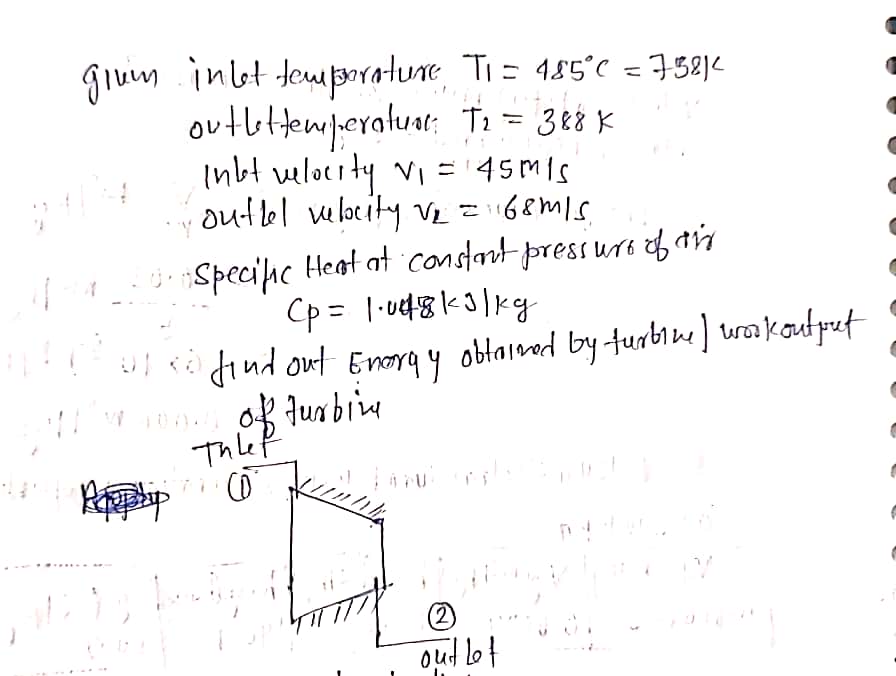 given inlet temperature T1 = 485°C = 758K
outlet temperature T2 = 388 K
Inlet velocity V1 = 45m/s
outlet velocity V2 = 68m/s
Specific Heat at constant pressure of air
Cp = 1.048 kJ/kg
find out Energy obtained by turbine / workoutput
of turbine
Inlet
①
②
outlet